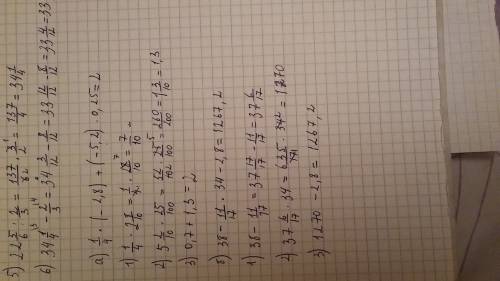 5) 22 5/6 · 3/2 = 137/62 · 3¹/2 = 137/4 = 34 1/4
6) 34 1/4 - 2/3 = 34 3/12 - 8/12 = 33 - 8/12 = 33
а) 1/4 · (-2,8) + (-5,2) · 0,25 = 2
1) 1/4 · 2 8/10 = 1/4 · 28⁷/10 = 7/10
2) 5 2/10 · 25/100 = 52/102 · 25⁵/100 = 260/200 = 1 3/10 = 1,3
3) 0,7 + 1,3 = 2
б) 38 - 11/17 · 34 - 2,8 = 1267,2
1) 38 - 11/17 = 37 17/17 - 11/17 = 37 6/17
2) 37 6/17 · 34 = 635/171 · 34² = 1270
3) 1270 - 2,8 = 1267,2